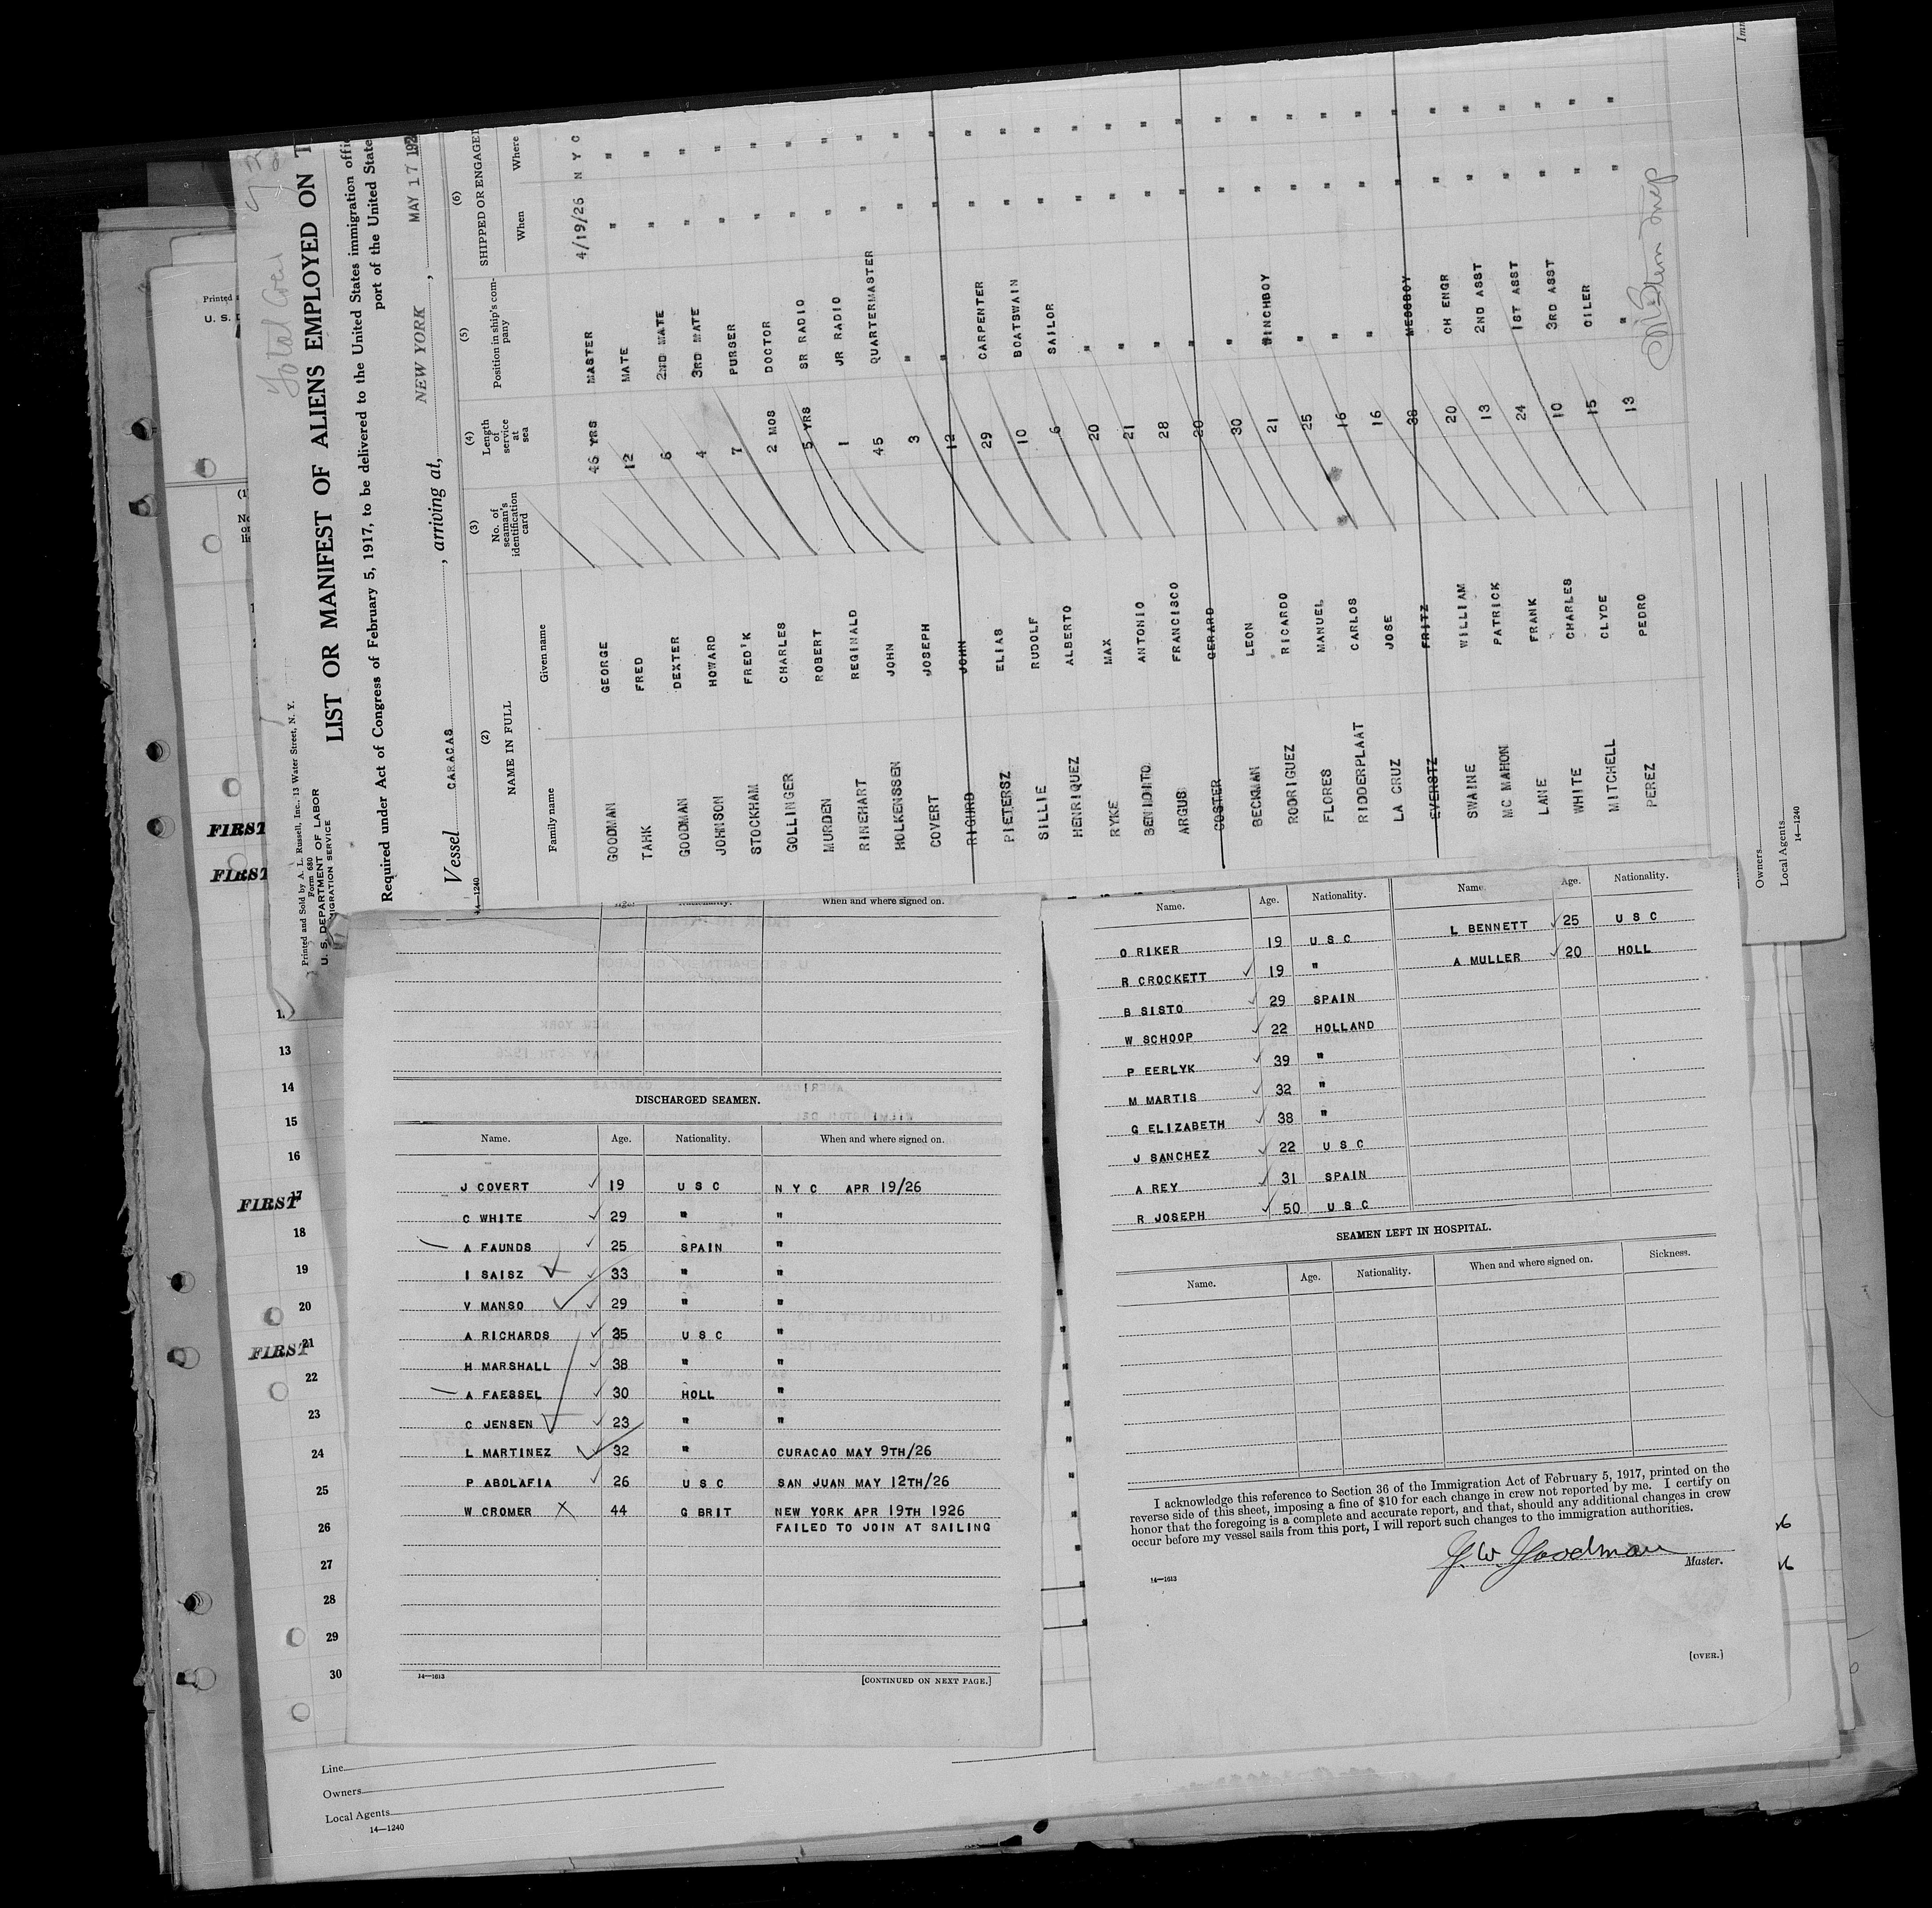 Printed and Sold by A. L. Russell, Inc., 13 Water Street, N. Y.
Form 680
U. S. DEPARTMENT OF LABOR
MIGRATION SERVICE
Total Crew
LIST OR MANIFEST OF ALIENS EMPLOYED ON T
Required under Act of Congress of February 5, 1917, to be delivered to the United States immigration offic
port of the United State
Vessel CARACAS, arriving at, NEW YORK, MAY 17 192
14—1240
(2) (3) (4) (5) (6)
NAME IN FULL No. of seaman's identification card Length of service at sea Position in ship's company SHIPPED OR ENGAGED
Family name Given name When Where
GOODMAN GEORGE 46 YRS MASTER 4/19/26 N Y C
TAHK FRED 12 MATE " "
GOODMAN DEXTER 6 2ND MATE " "
JOHNSON HOWARD 4 3RD MATE " "
STOCKHAM FRED'K 7 PURSER " "
GOLLINGER CHARLES 2 MOS DOCTOR " "
MURDEN ROBERT 5 YRS SR RADIO " "
RINEHART REGINALD 1 JR RADIO " "
HOLKENSSEN JOHN 45 QUARTERMASTER " "
COVERT JOSEPH 3 " " "
RIGIRD JOHN 12 " " "
PIETERSZ ELIAS 29 CARPENTER " "
SILLIE RUDOLF 10 BOATSWAIN " "
HENRIQUEZ ALBERTO 6 SAILOR " "
RYKE MAX 20 " " "
BENIDITO ANTONIO 21 " " "
ARGUS FRANCISCO 28 " " "
COSTER GERARD 20 " " "
BECKMAN LEON 30 " " "
RODRIGUEZ RICARDO 21 WINCHBOY " "
FLORES MANUEL 25 " " "
RIDDERPLAAT CARLOS 16 " " "
LA CRUZ JOSE 16 " " "
EVERSTZ FRITZ 38 MESSBOY " "
SWAINE WILLIAM 20 CH ENGR " "
MC MAHON PATRICK 13 2ND ASST " "
LANE FRANK 24 1ST ASST " "
WHITE CHARLES 10 3RD ASST " "
MITCHELL CLYDE 15 OILER " "
PEREZ PEDRO 13 " " "
Owners
Local Agents
14—1240
Printed
U. S. D
FIRST
FIRST
13
14
15
16
FIRST 17
18
19
20
FIRST 21
22
23
24
25
26
27
28
29
30
Line
Owners
Local Agents
14—1240
When and where signed on.
DISCHARGED SEAMEN.
Name. Age. Nationality. When and where signed on.
J COVERT 19 U S C N Y C APR 19/26
C WHITE 29 " "
A FAUNDS 25 SPAIN "
I SAISZ 33 " "
V MANSO 29 " "
A RICHARDS 35 U S C "
H MARSHALL 38 " "
A FAESSEL 30 HOLL "
C JENSEN 23 " "
L MARTINEZ 32 " CURACAO MAY 9TH/26
P ABOLAFIA 26 U S C SAN JUAN MAY 12TH/26
W CROMER X 44 G BRIT NEW YORK APR 19TH 1926
FAILED TO JOIN AT SAILING
14—1613 [CONTINUED ON NEXT PAGE.]
Name. Age. Nationality. Name. Age. Nationality.
O RIKER 19 U S C L BENNETT 25 U S C
R CROCKETT 19 " A MULLER 20 HOLL
B SISTO 29 SPAIN
W SCHOOP 22 HOLLAND
P EERLYK 39 "
M MARTIS 32 "
G ELIZABETH 38 "
J SANCHEZ 22 U S C
A REY 31 SPAIN
R JOSEPH 50 U S C
SEAMEN LEFT IN HOSPITAL.
Name. Age. Nationality. When and where signed on. Sickness.
I acknowledge this reference to Section 36 of the Immigration Act of February 5, 1917, printed on the
reverse side of this sheet, imposing a fine of $10 for each change in crew not reported by me. I certify on
honor that the foregoing is a complete and accurate report, and that, should any additional changes in crew
occur before my vessel sails from this port, I will report such changes to the immigration authorities.
G. W. Goodman
Master.
14—1613
[OVER.]